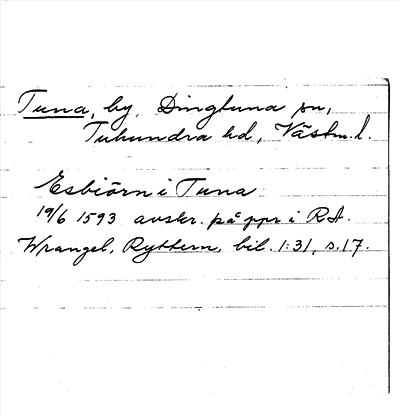 Tuna, by, Dingtuna sn,
Tuhundra hd, Västm.l.
Esbiörn i Tuna
19/6 1593 avskr. på ppr i RA.
Wrangel, Ryttern, bil. 1:31, s.17.